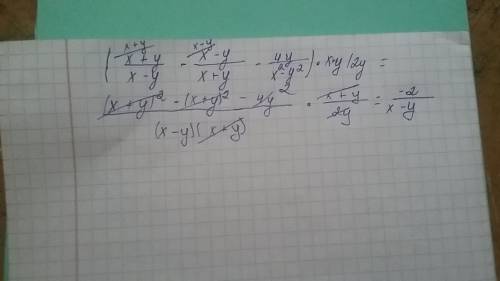 ( (x+y)/(x-y) ^(x+y) - (x-y)/(x+y) ^(x-y) - 4y/(x²-y²) ) · x+y/2y =
((x+y)² - (x+y)² - 4y²)/((x-y)(x+y)) · (x+y)/2y = -2/(x-y)